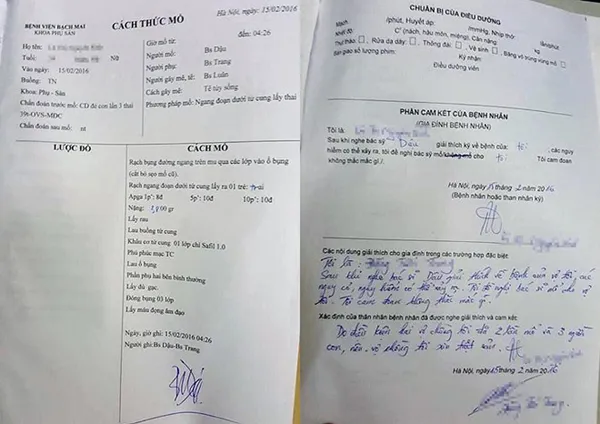 BỆNH VIỆN BẠCH MAI
KHOA PHỤ SẢN
CÁCH THỨC MỔ
Hà Nội, ngày: 15/02/2016
Họ tên:
Tuổi: Nữ
Vào ngày: 15/02/2016
Buồng: TN
Khoa: Phụ - Sản
Chẩn đoán trước mổ: CD đẻ con lần 3 thai
39t-OVS-MĐC
Chẩn đoán sau mổ: nt
Giờ mổ từ: đến: 04:26
Người mổ: Bs Dậu
Người phụ: Bs Trang
Người gây mê, tê: Bs Luân
Cách gây mê: Tê tủy sống
Phương pháp mổ: Ngang đoạn dưới tử cung lấy thai
LƯỢC ĐỒ
CÁCH MỔ
Rạch bụng đường ngang trên mu qua các lớp vào ổ bụng
(cắt bỏ sẹo mổ cũ).
Rạch ngang đoạn dưới tử cung lấy ra 01 trẻ: ai
Apga 1p': 8đ 5p': 10đ 10p': 10đ
Nặng: 00 gr
Lấy rau
Lau buồng tử cung
Khâu cơ tử cung 01 lớp chỉ Safil 1.0
Phủ phúc mạc TC
Lau ổ bụng
Phần phụ hai bên bình thường
Lấy đủ gạc.
Đóng bụng 03 lớp
Lấy máu đọng âm đạo
Ngày, giờ ghi: 15/02/2016 04:26
Người ghi:Bs Dậu-Bs Trang
CHUẨN BỊ CỦA ĐIỀU DƯỠNG
Mạch /phút, Huyết áp: /mmHg, Nhịp thở lần/phút
C° (nách, hậu môn, miệng), Cân nặng kg
Thử tháo: , Rửa dạ dày: , Thông đái: , Vệ sinh , Băng vô trùng vùng mổ
Bàn giao số lượng phim: Ký nhận:
Điều dưỡng viên
PHẦN CAM KẾT CỦA BỆNH NHÂN
(GIA ĐÌNH BỆNH NHÂN)
Tôi là:
Sau khi nghe bác sỹ Dậu giải thích kỹ về bệnh của tôi, các nguy
hiểm có thể xảy ra, tôi đề nghị bác sỹ mổ không mổ cho tôi Tôi cam đoan
không thắc mắc gì./.
Hà Nội, ngày 15 / 2 năm 2016
(Bệnh nhân hoặc thân nhân ký)
Các nội dung giải thích cho gia đình trong các trường hợp đặc biệt:
Tôi là:
Sau khi nghe bác sĩ Dậu giải thích về bệnh của vợ tôi, các
nguy cơ, nguy hiểm có thể xảy ra. Tôi đề nghị bác sĩ mổ cho vợ
tôi. Tôi cam đoan không thắc mắc gì.
Xác định của thân nhân bệnh nhân đã được nghe giải thích và cam kết:
Do điều kiện hai vợ chồng tôi đã 2 lần mổ và 3 người
con, nên vợ chồng tôi xin thắt
Hà Nội, ngày 15 / 2 năm 2016